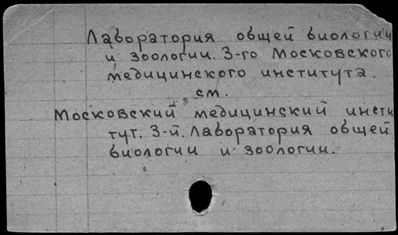 Лаборатория общей биологии
и зоологии. 3-го Московского
медицинского института.
см.
Московский медицинский инсти
тут. 3-й. Лаборатория общей
биологии и зоологии.